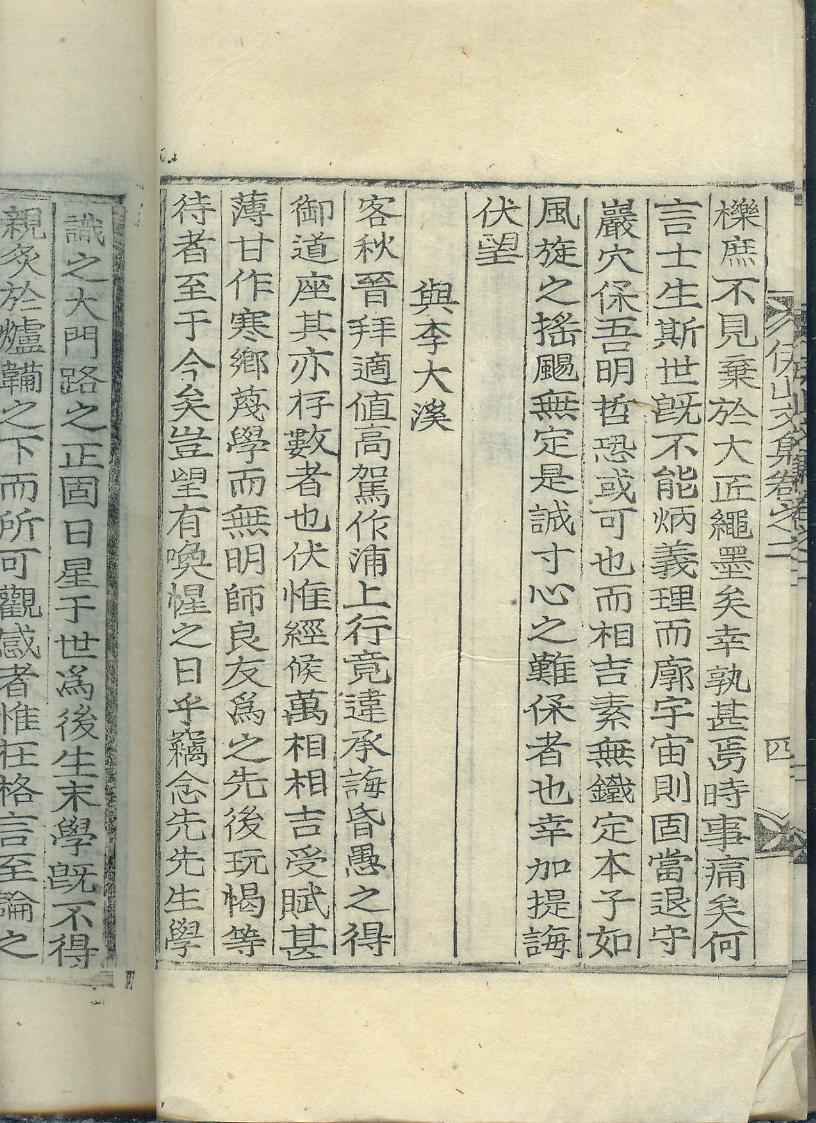 伏山文集卷之二
四
櫟庶不見棄於大匠繩墨矣幸孰甚焉時事痛矣何
言士生斯世旣不能炳義理而廓宇宙則固當退守
巖穴保吾明哲恐或可也而相吉素無鐵定本子如
風旋之搖颺無定是誠寸心之難保者也幸加提誨
伏望
與李大溪
客秋晉拜適値高駕作浦上行竟違承誨昏愚之得
御道座其亦存數者也伏惟經候萬相相吉受賦甚
薄甘作寒鄉蔑學而無明師良友爲之先後玩愒等
待者至于今矣豈望有喚惺之日乎竊念先先生學
識之大門路之正固日星于世爲後生末學旣不得
親炙於爐韛之下而所可觀感者惟在格言至論之